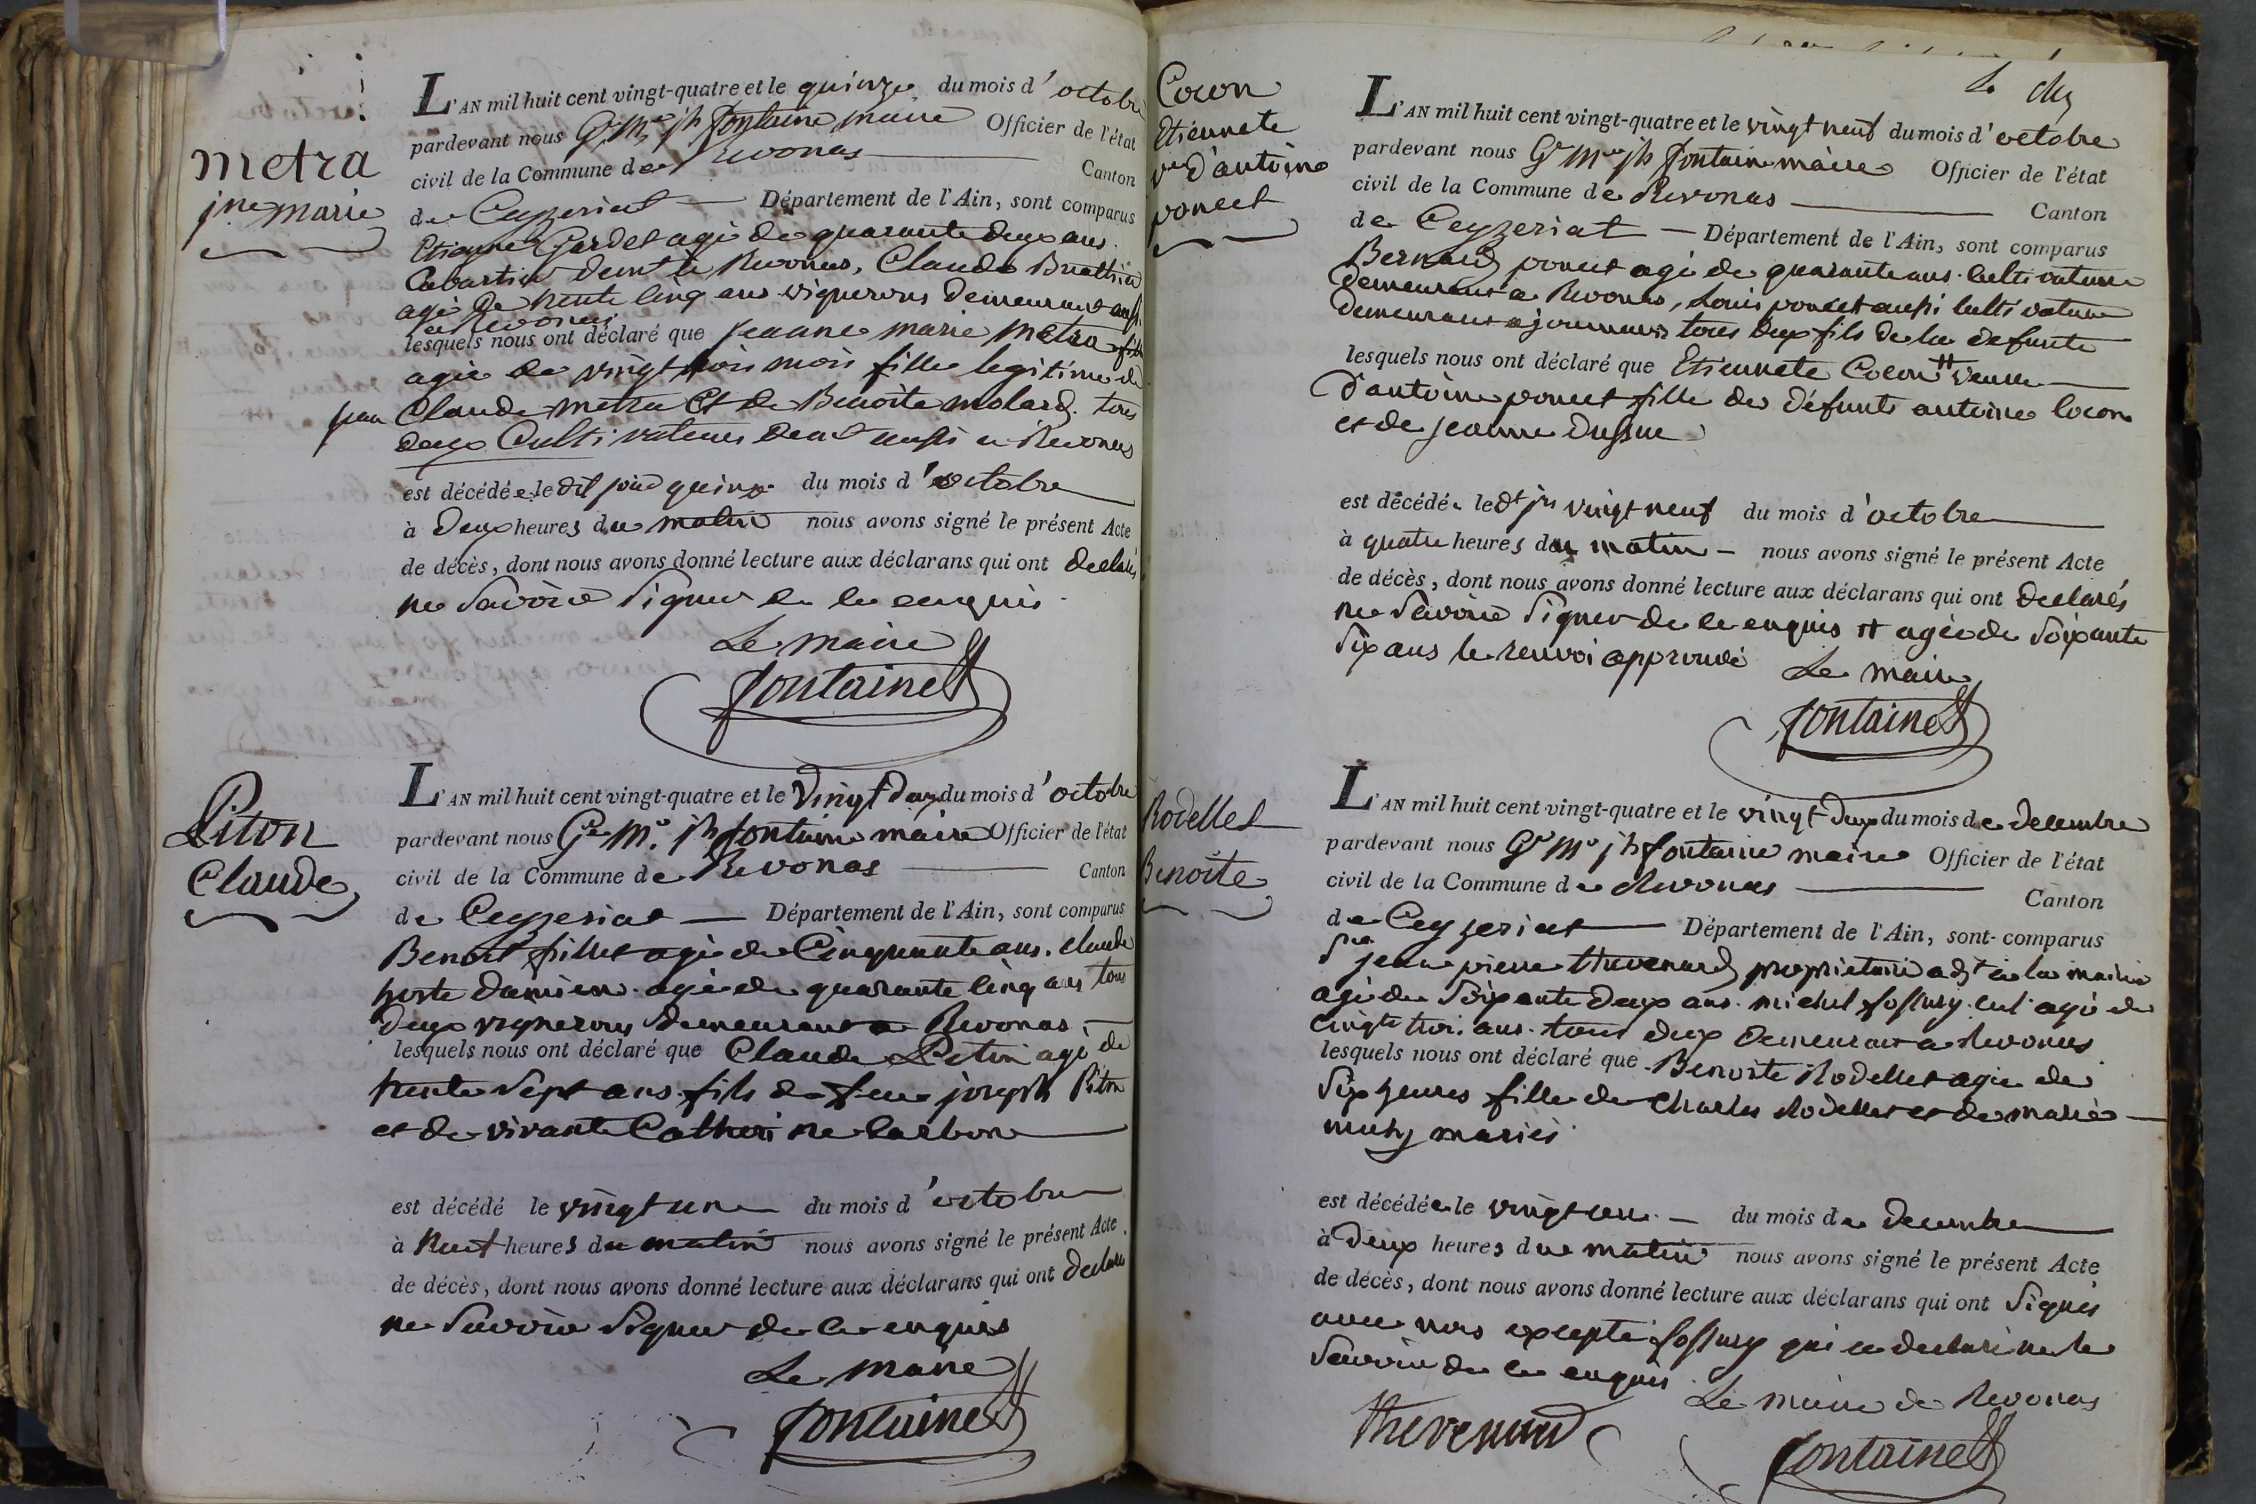 metra
jne marie
L'AN mil huit cent vingt-quatre et le quinze du mois d'octobre
pardevant nous Ge Me jh fontaine maire Officier de l'état
civil de la Commune de Revonas Canton
de Ceyzeriat Département de l'Ain, sont comparus
Etienne Gardet agé de quarante deux ans
Cabartier demt à Revonas, Claude
agé de trente cinq ans vignerons demeurant aussi
a Revonas
lesquels nous ont déclaré que jeanne marie metra
agée de vingt trois mois fille legitime de
jean Claude metra Et de Benoite molard tous
deux Cultivateurs demt aussi a Revonas
est décédée le dit jour quinze du mois d'octobre
à deux heures du matin nous avons signé le présent Acte
de décès, dont nous avons donné lecture aux déclarans qui ont declarés
ne Savoir Signer de ce enquis
Le maire
fontaine
Piton
Claude
L'AN mil huit cent vingt-quatre et le vingt deux du mois d'octobre
pardevant nous Ge Me jh fontaine maire Officier de l'état
civil de la Commune de Revonas Canton
de Ceyzeriat Département de l'Ain, sont comparus
Benoit fillet agé de Cinquante ans. claude
damien agé de quarante cinq ans tous
deux vignerons demeurant a Revonas
lesquels nous ont déclaré que Claude Piton agé de
trente Sept ans fils de feu joseph Piton
et de vivante Catherine Carbon
est décédé le vingt un du mois d'octobre
à Neuf heures du matin nous avons signé le présent Acte
de décès, dont nous avons donné lecture aux déclarans qui ont declarés
ne Savoir Signer de ce enquis
Le maire
fontaine
Cocon
Etiennete
ve d'antoine
poncet
L'AN mil huit cent vingt-quatre et le vingt neuf du mois d'octobre
pardevant nous Ge Me jh fontaine maire Officier de l'état
civil de la Commune de Revonas Canton
de Ceyzeriat Département de l'Ain, sont comparus
Bernard poncet agé de quarante ans cultivateur
demeurant a Revonas, Louis poncet aussi cultivateur
demeurant a journans tous deux fils de la defunte
lesquels nous ont déclaré que Etiennete Cocon # veuve
d'antoine poncet fille de défunts antoine Cocon
et de jeanne
est décédée le dt jr vingt neuf du mois d'octobre
à quatre heures du matin nous avons signé le présent Acte
de décès, dont nous avons donné lecture aux déclarans qui ont declarés
ne Savoir Signer de ce enquis # agée de Soixante
Six ans le renvoi approuvé Le maire
fontaine
Rodellet
Benoite
L'AN mil huit cent vingt-quatre et le vingt deux du mois de decembre
pardevant nous Ge Me jh fontaine maire Officier de l'état
civil de la Commune de Revonas Canton
de Ceyzeriat Département de l'Ain, sont comparus
Sr jean pierre thevenard proprietaire adjt à la mairie
agé de Soixante deux ans. michel fossury cult agé de
cinqte trois ans tous deux demeurant a Revonas
lesquels nous ont déclaré que Benoite Rodellet agée de
Six heures fille de Charles Rodellet et de marie
musy mariés
est décédée le vingt un du mois de decembre
à deux heures du matin nous avons signé le présent Acte
de décès, dont nous avons donné lecture aux déclarans qui ont Signés
avec nous excepté fossury qui a declaré ne le
Savoir de ce enquis
Le maire de Revonas
thevenard
fontaine